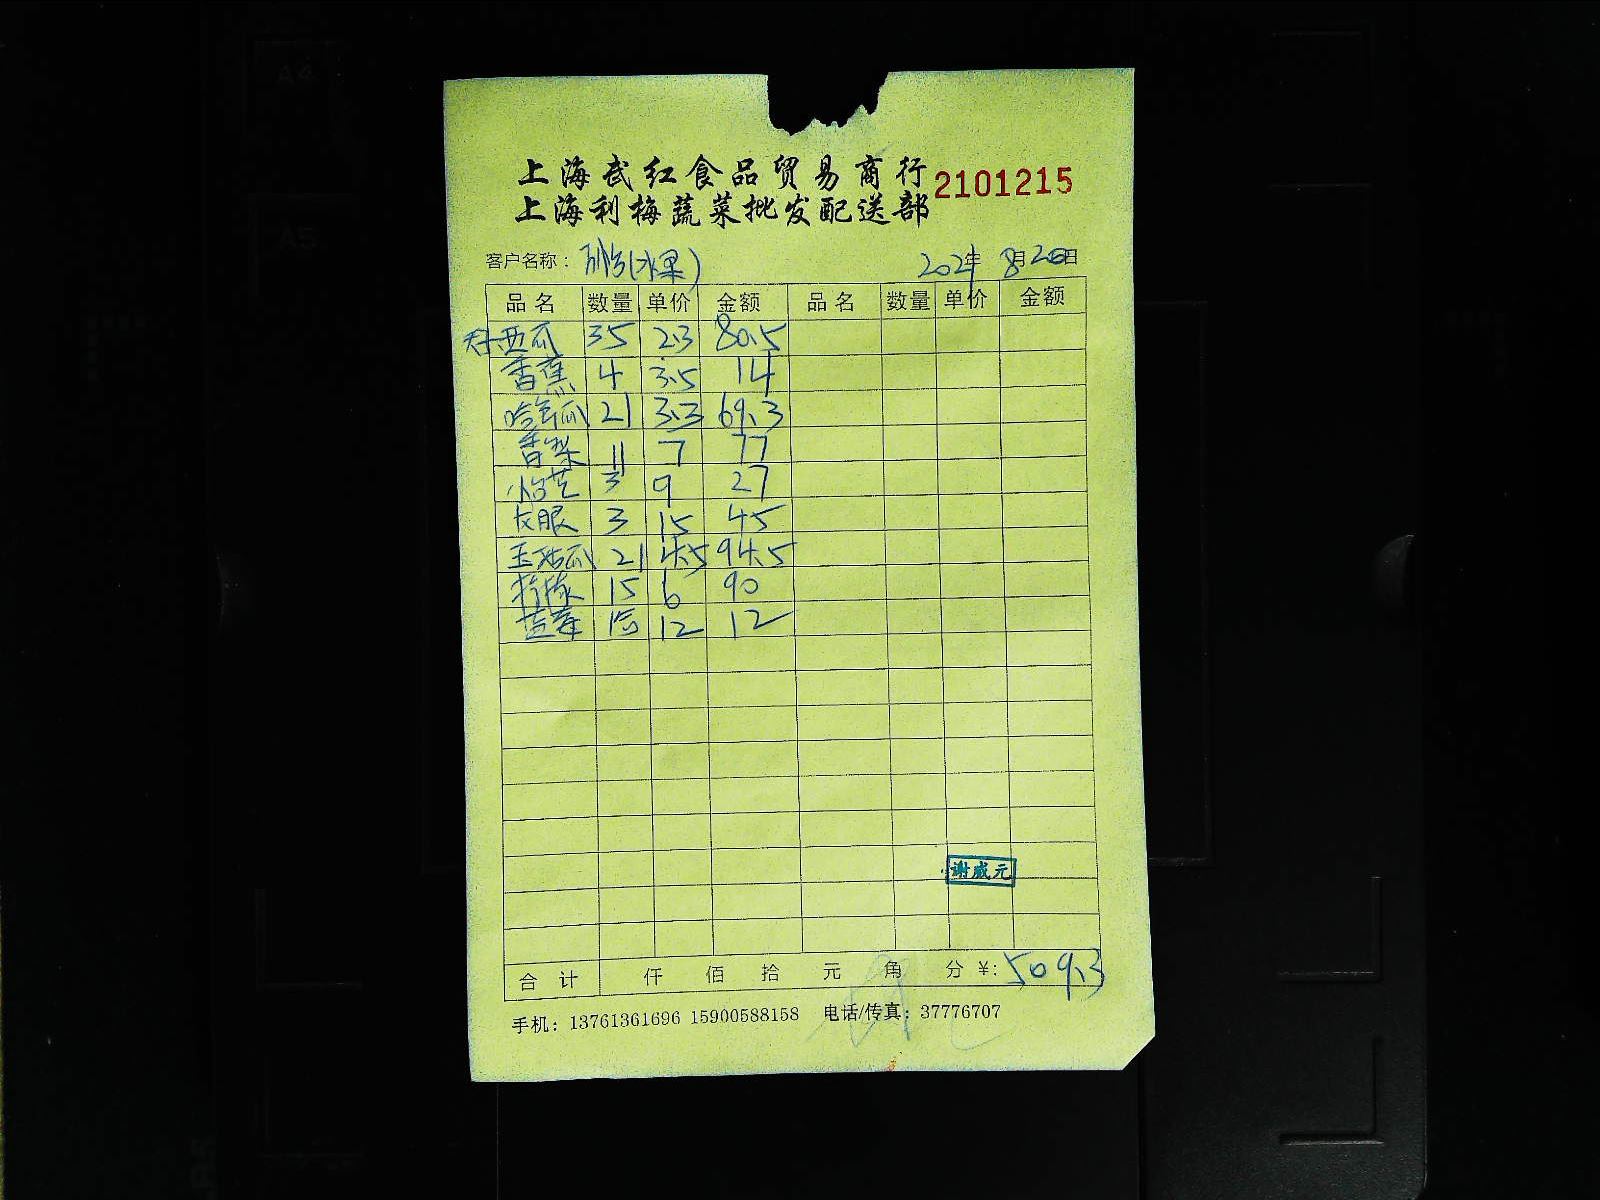 上海武红食品贸易商行
2101215
上海利梅蔬菜批发配送部
客户名称： (水果) 2021年 8月20日
品名 数量 单价 金额 品名 数量 单价 金额
西瓜 35 2.3 80.5
香蕉 4 3.5 14
哈密瓜 21 3.3 69.3
香梨 11 7 77
3 9 27
龙眼 3 15 45
玉菇瓜 21 4.5 94.5
15 6 90
蓝莓 1 12 12
谢威元
合计 仟 佰 拾 元 角 分 ¥: 509.3
手机：13761361696 15900588158 电话/传真：37776707
A4
A5